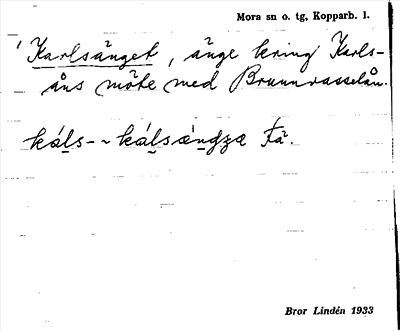 Mora sn o. tg, Kopparb. l.
Karlsänget, änge kring Karls-
åns möte med Brunnvasselån.
káls- ~ kálsǽndzæ Få.
Bror Lindén 1933